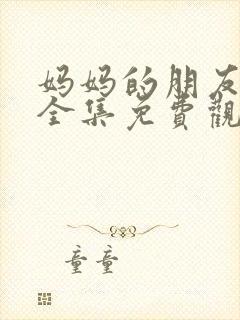 妈妈的朋友
全集免費觀
童童